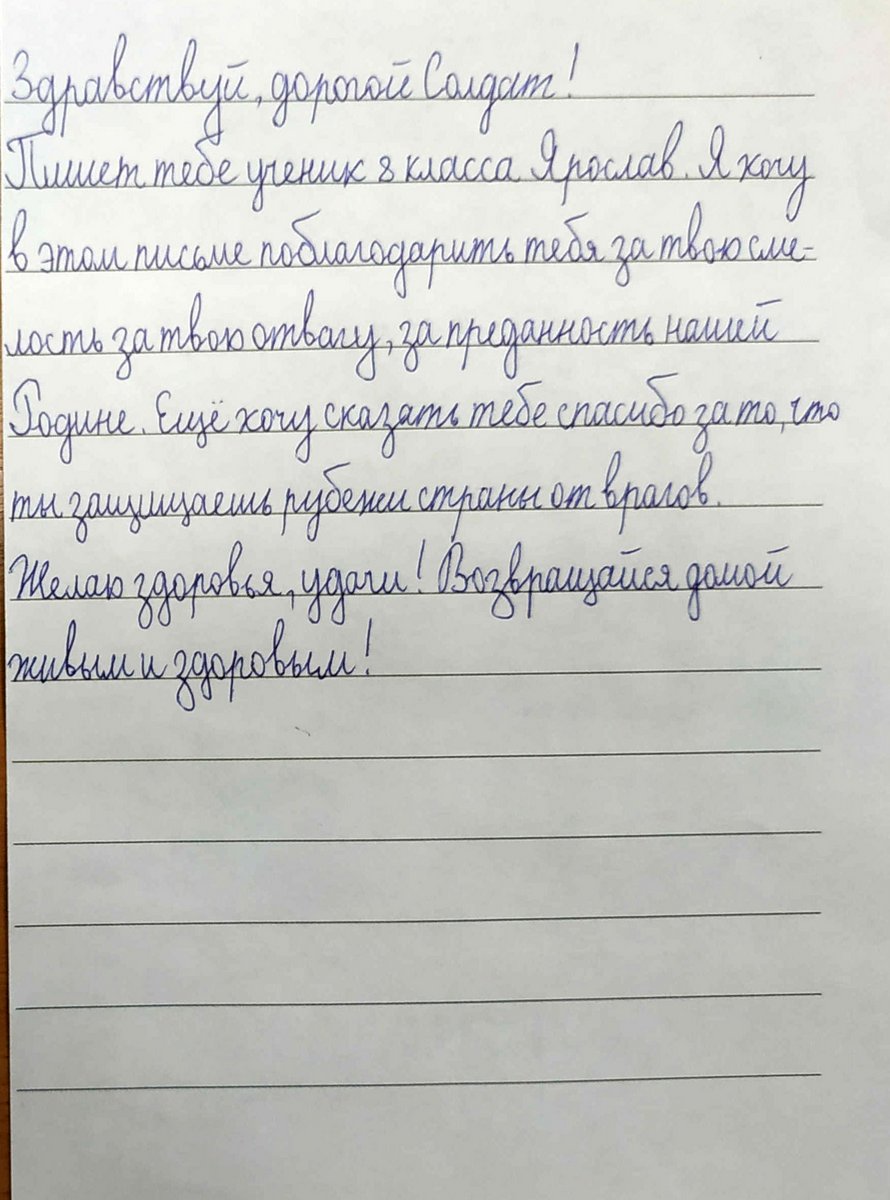 Здравствуй, дорогой Солдат!
Пишет тебе ученик 8 класса Ярослав. Я хочу
в этом письме поблагодарить тебя за твою сме-
лость за твою отвагу, за преданность нашей
Родине. Ещё хочу сказать тебе спасибо за то, что
ты защищаешь рубежи страны от врагов.
Желаю здоровья, удачи! Возвращайся домой
живым и здоровым!